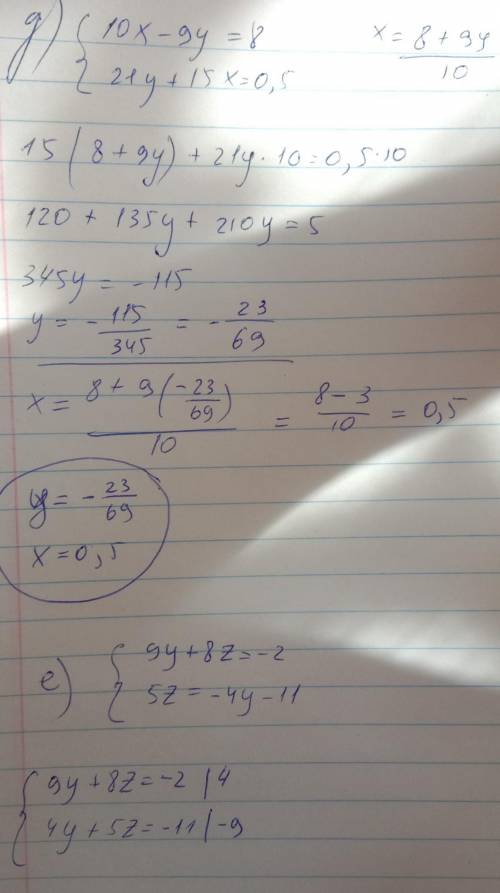 д) { 10x - 9y = 8      x = (8 + 9y)/10
{ 21y + 15x = 0,5
15(8 + 9y) + 21y · 10 = 0,5 · 10
120 + 135y + 210y = 5
345y = -115
y = - 115/345 = - 23/69
x = (8 + 9(-23/69))/10 = (8 - 3)/10 = 0,5
y = - 23/69
x = 0,5
е) { 9y + 8z = -2
{ 5z = -4y - 11
{ 9y + 8z = -2 | 4
{ 4y + 5z = -11 | -9